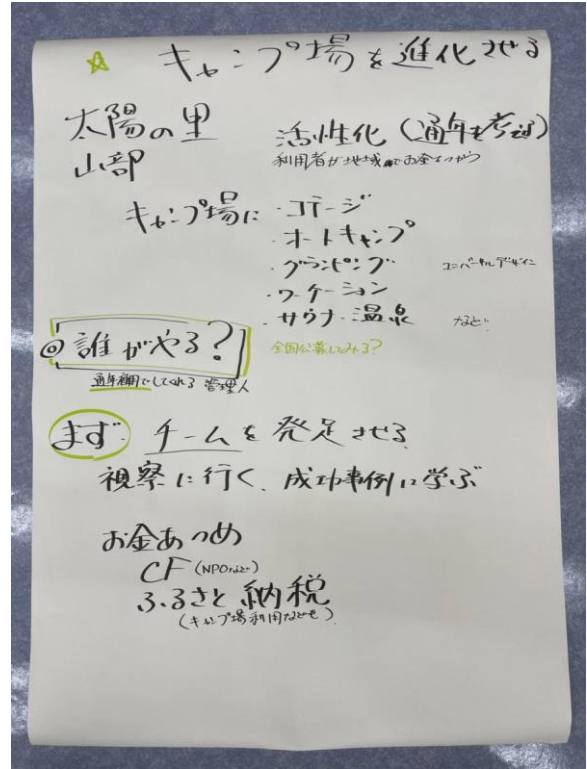 ☆ キャンプ場を進化させる
太陽の里 活性化(通年を考える)
山部 利用者が地域でお金をつかう
キャンプ場に ・コテージ
・オートキャンプ
・グランピング ユニバーサルデザイン
・ワーケーション
・サウナ・温泉 など
◎誰がやる? 全国公募してみる?
通年雇用でしてくれる 管理人
まず チームを発足させる
視察に行く、成功事例に学ぶ
お金あつめ
CF(NPOなど)
ふるさと納税
(キャンプ場利用なども)